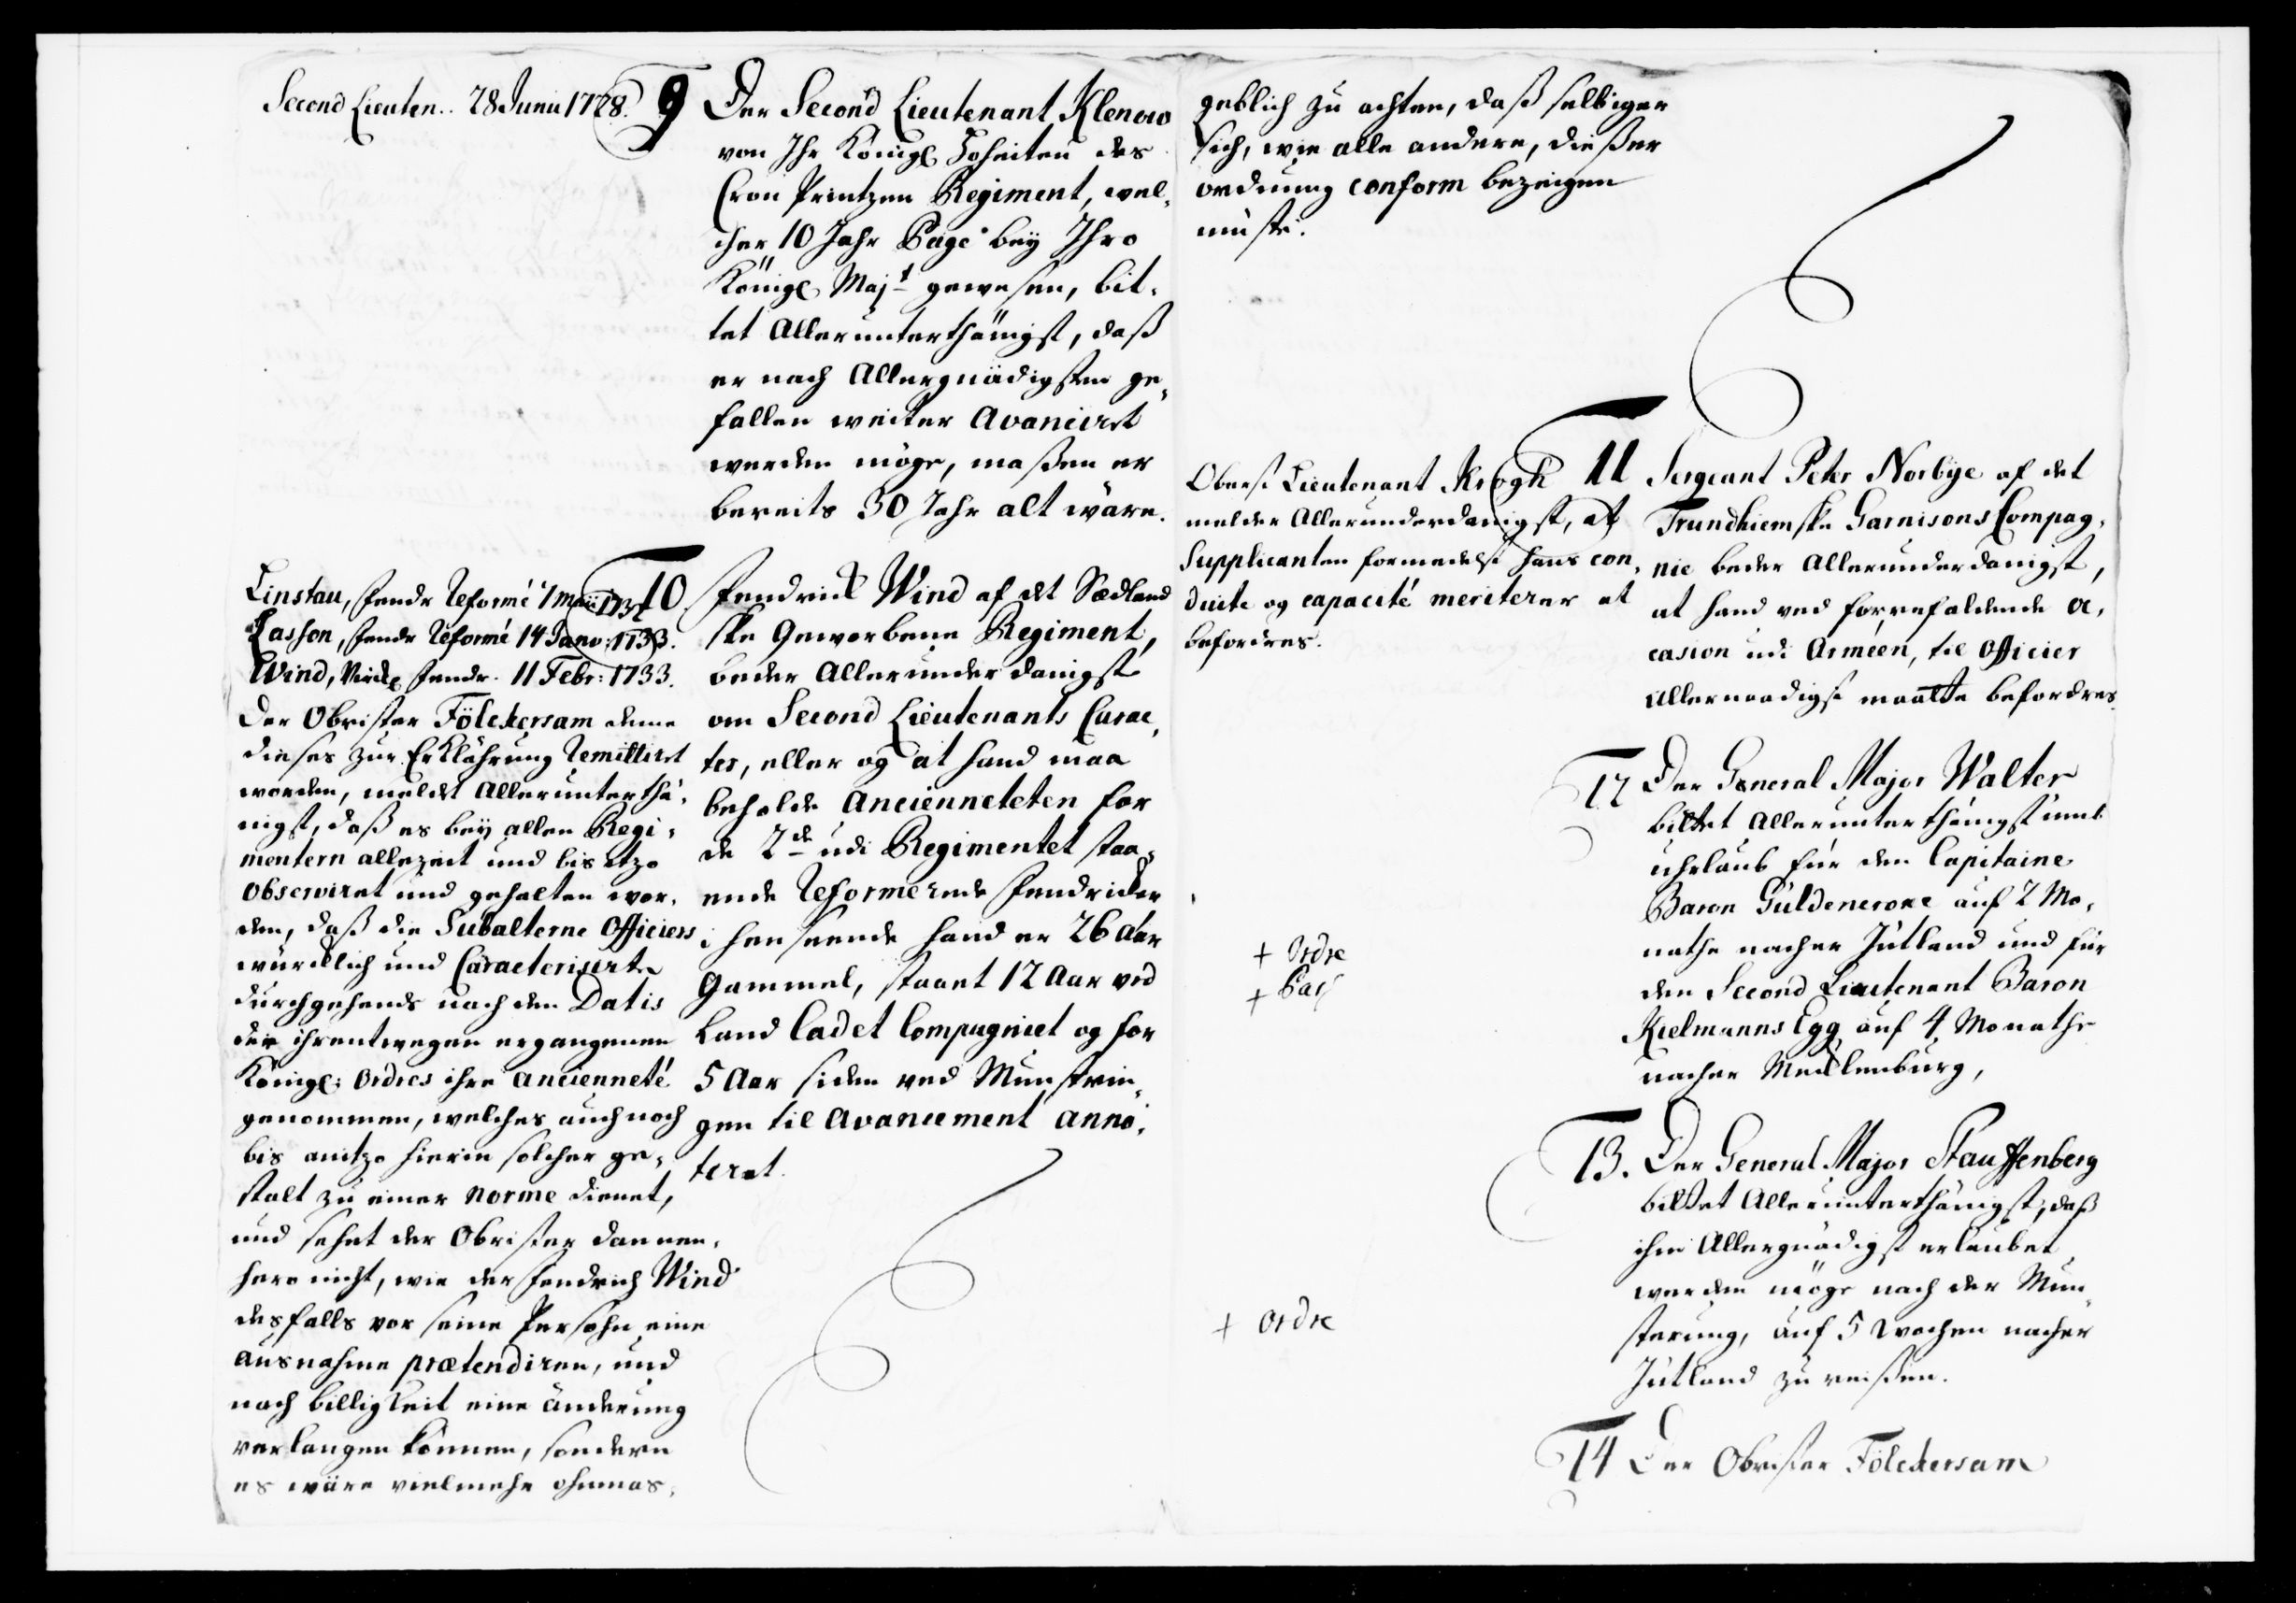 Second Lieuten.. 28 Junii 1728.
9 Der Second Lieutenant Klenow
von Ihr Königl Hoheiten des
Cron Printzen Regiment, wel,
cher 10 Jahr Page bey Ihro
Königl Majt gewesen, bit,
tet Allerunterthänigst, daß
er nach Allergnädigsten ge,
fallen weiter Avanciret
werden möge, maßen er
bereits 30 Jahr alt wäre.
Linstau, Fendr Reformé 1 Maii 173
Lasson, Fendr Reformé 14 Janv: 1733.
Wind, Virkl Fendr. 11 Febr: 1733.
Der Obrister Fölckersam deme
dieses zur Erklährung Remittiret
worden, meldet Allerunterthä,
nigst, daß es bey allen Regi,
mentern allezeit und bis itzo
observiret und gehalten wor,
den, daß die Subalterne Officiers
würcklich und Caracterisirte
durchgehends nach den Datis
der ihrentwegen ergangenen
Königl: Ordres ihre ancienneté
genommen, welches auch noch
bis anitzo hierin solcher ge,
stalt zu einer norme dienet,
und sehet der Obrister dannen,
hero nicht, wie der Fendrich Wind
desfalls vor seine Persohn eine
ausnahme prætendiren, und
nach billigkeit eine änderung
verlangen können, sondern
es wäre vielmehr ohnmas,
10 Fendrick Wind af det Siædland
ske Geworbene Regiment,
beder Allerunderdanigst
om Second Lieutenants Carac,
ter, eller og at hand maa
beholde Ancienneteten for
de 2de udi Regimentet staa,
ende Reformerede Fendricker
i henseende hand er 26 Aar
gammel, staaet 12 Aar ved
Land Cadet Compagniet og for
5 Aar siden ved Munstrin,
gen til Avancement anno,
teret.
geblich zu achten, daß selbiger
sich, wie alle andere, dießer
ordnung conform bezeigen
müste.
Oberst Lieutenant Krogh
melder Allerunderdanigst, at
Supplicanten formedelst hans con,
duite og capacité meriterer at
befordres.
11 Sergeant Peter Norbye af det
Trundhiemske Garnisons Compag,
nie beder Allerunderdanigst,
at hand ved forrefaldende o,
casion udi Arméen, til Officier
Allernaadigst maatte befordres.
12 Der General Major Walter
bittet Allerunterthänigst umb
uhrlaub für den Capitaine
Baron Güldencrone auf 2 Mo,
nathe nacher Jütland und für
den Second Lieutenant Baron
Kielmanns Egg auf 4 Monathe
nacher Mecklenburg,
+ Ordre
+ Pas
13. Der General Major Stauffenberg
bittet Allerunterthänigst, daß
ihm Allergnädigst erlaubet
werden möge nach der Mun,
sterung, auf 5 Wochen nacher
Jütland zu reißen.
+ Ordre
14 Der Obrister Fölckersam